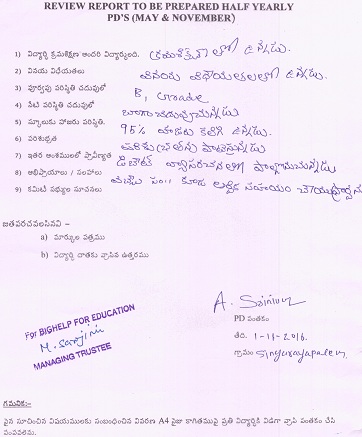 REVIEW REPORT TO BE PREPARED HALF YEARLY
PD'S (MAY & NOVEMBER)
1) విద్యార్థి క్రమశిక్షణ అందరి విద్యార్థులది. క్రమశిక్షణ లో ఉన్నాడు.
2) వినయ విధేయతలు వినయ విధేయతలలో ఉన్నాడు.
3) పూర్వపు పరిస్థితి చదువులో B, Grade
4) నేటి పరిస్థితి చదువులో బాగా చదువుచున్నాడు
5) స్కూలుకు హాజరు పరిస్థితి. 95% హాజరు కలిగి ఉన్నాడు.
6) పరిశుభ్రత పరిశుభ్రతను పాటిస్తున్నాడు
7) ఇతర అంశములలో ప్రావీణ్యత డిబేట్ వ్యాసరచన పాల్గొనుచున్నాడు
8) అభిప్రాయాలు / సలహాలు
9) కమిటీ సభ్యుల సూచనలు
జతపరచవలసినవి –
a) మార్కుల పత్రము
b) విద్యార్థి దాతకు వ్రాసిన ఉత్తరము
For BIGHELP FOR EDUCATION
M. Sarojini
MANAGING TRUSTEE
A. Srinivas
PD సంతకం
తేది. 1-11-2016.
గ్రామం Singurayapalem.
గమనిక:–
పైన సూచించిన విషయములకు సంబంధించిన వివరణ A4 సైజు కాగితముపై ప్రతి విద్యార్థికి విడిగా వ్రాసి సంతకం చేసి
పంపవలెను.